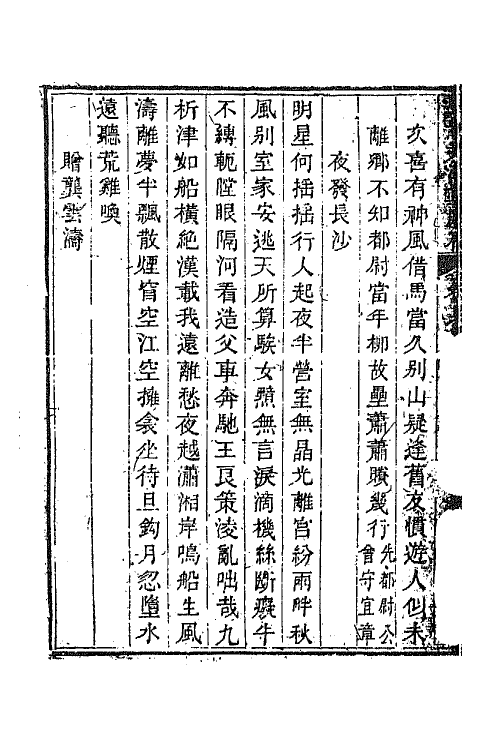 次喜有神風借馬當久别山疑逢舊友慣遊人似未
離鄉不知都尉當年柳故壘蕭蕭賸幾行先都尉公曾守宜章
夜發長沙
明星何揺揺行人起夜半營室無晶光離宫紛雨畔秋
風别室家安逃天所算騃女黯無言淚滴機絲斷癡牛
不縛軛瞠眼隔河看造父車奔馳王良策淩亂咄哉九
析津如船横絶漢載我遠離愁夜越瀟湘岸鳴船生風
濤離夢半飄散煙篃空江空擁衾坐待旦鈎月忽墮水
遠聽荒雞喚
贈龔雲濤